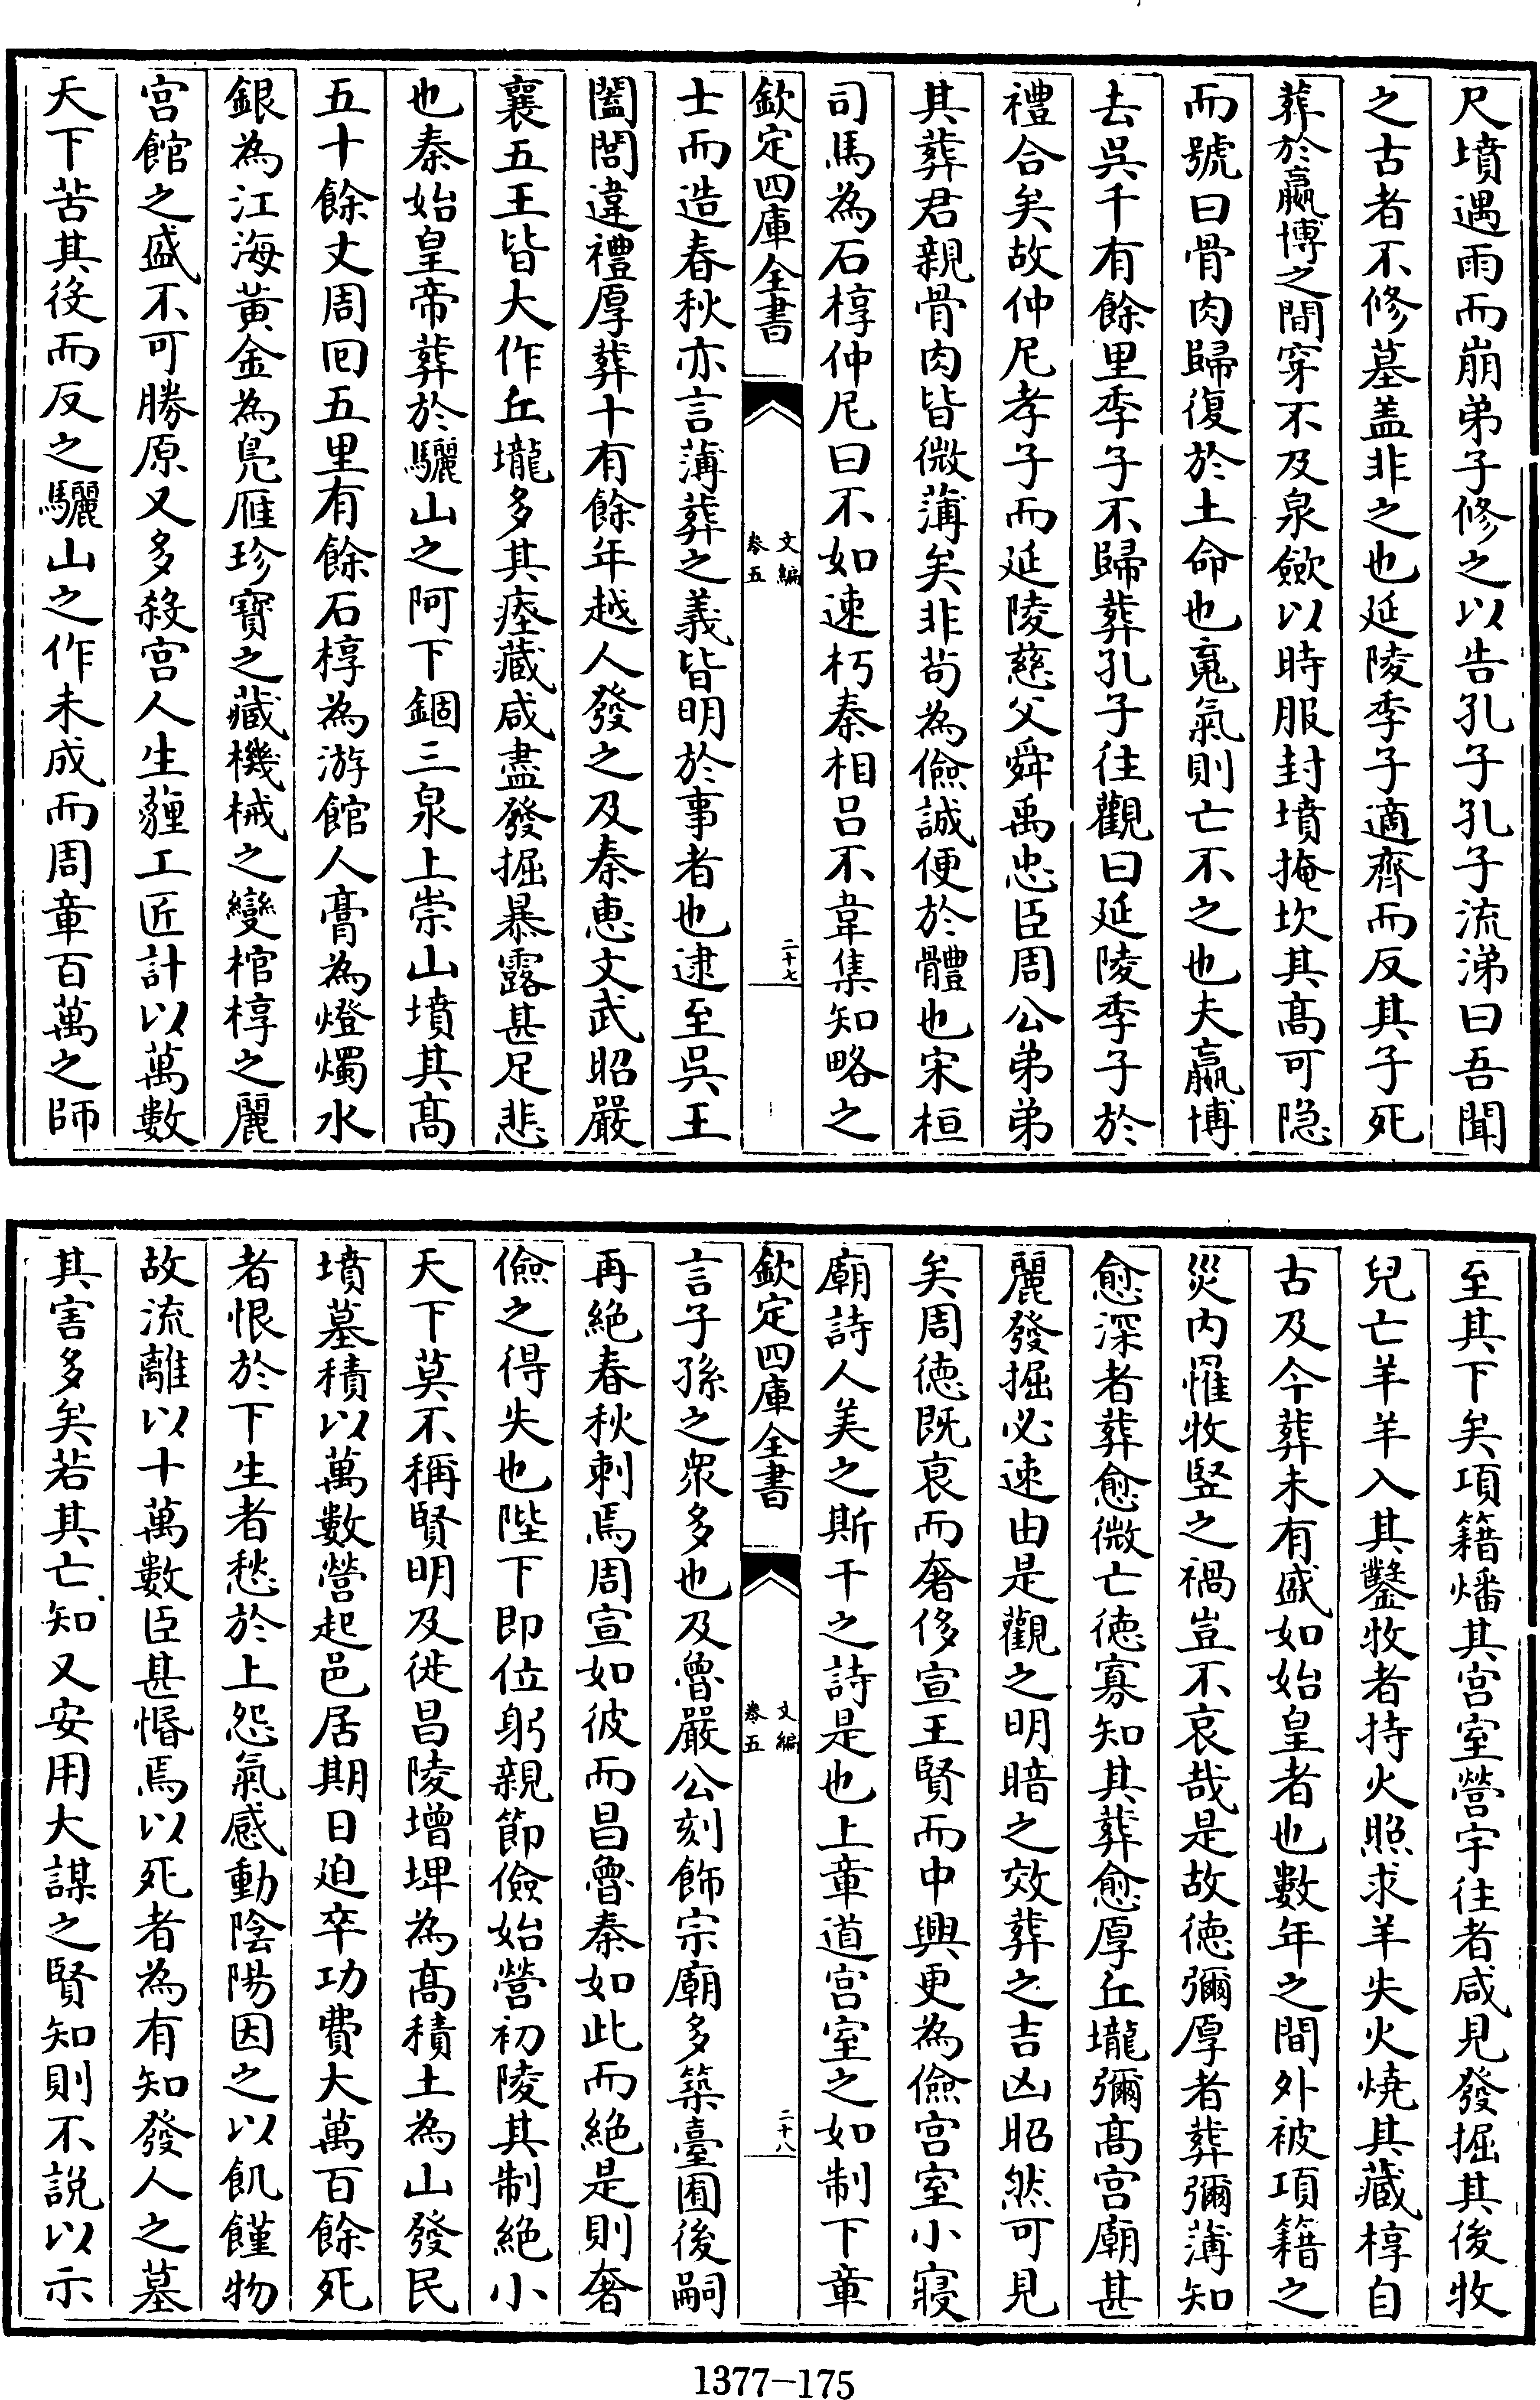 尺墳遇雨而崩弟子修之以告孔子孔子流涕曰吾聞
之古者不修墓盖非之也延陵季子適齊而反其子死
葬於嬴博之間穿不及泉歛以時服封墳掩坎其高可隐
而號曰骨肉歸復於土命也䰟氣則亡不之也夫嬴博
去吳千有餘里季子不歸葬孔子往觀曰延陵季子於
禮合矣故仲尼孝子而延陵慈父舜禹忠臣周公弟弟
其葬君親骨肉皆微薄矣非苟為儉誠便於體也宋桓
司馬為石椁仲尼曰不如速朽秦相吕不韋集知略之
欽定四庫全書
文編
卷五
二十七
士而造春秋亦言薄葬之義皆明於事者也逮至吳王
闔閭違禮厚葬十有餘年越人發之及秦惠文武昭嚴
襄五王皆大作丘壠多其瘞藏咸盡發掘暴露甚足悲
也秦始皇帝葬於驪山之阿下錮三泉上崇山墳其高
五十餘丈周回五里有餘石椁為游館人膏為燈燭水
銀為江海黄金為鳬雁珍寶之藏機械之變棺椁之麗
宫館之盛不可勝原又多殺宫人生薶工匠計以萬數
天下苦其役而反之驪山之作未成而周章百萬之師
至其下矣項籍燔其宫室營宇往者咸見發掘其後牧
兒亡羊羊入其鑿牧者持火照求羊失火燒其藏椁自
古及今葬未有盛如始皇者也數年之間外被項籍之
災内罹牧竪之禍豈不哀哉是故徳彌厚者葬彌薄知
愈深者葬愈微亡徳寡知其葬愈厚丘壠彌高宫廟甚
麗發掘必速由是觀之明暗之效葬之吉凶昭然可見
矣周徳既衰而奢侈宣王賢而中興更為儉宫室小寢
廟詩人美之斯干之詩是也上章道宫室之如制下章
欽定四庫全書
文編
卷五
二十八
言子孫之衆多也及魯嚴公刻飾宗廟多築臺囿後嗣
再絶春秋刺焉周宣如彼而昌魯秦如此而絶是則奢
儉之得失也陛下即位躬親節儉始營初陵其制絶小
天下莫不稱賢明及徙昌陵增埤為高積土為山發民
墳墓積以萬數營起邑居期日迫卒功費大萬百餘死
者恨於下生者愁於上怨氣感動陰陽因之以飢饉物
故流離以十萬數臣甚惽焉以死者為有知發人之墓
其害多矣若其亡知又安用大謀之賢知則不説以示
1377-175